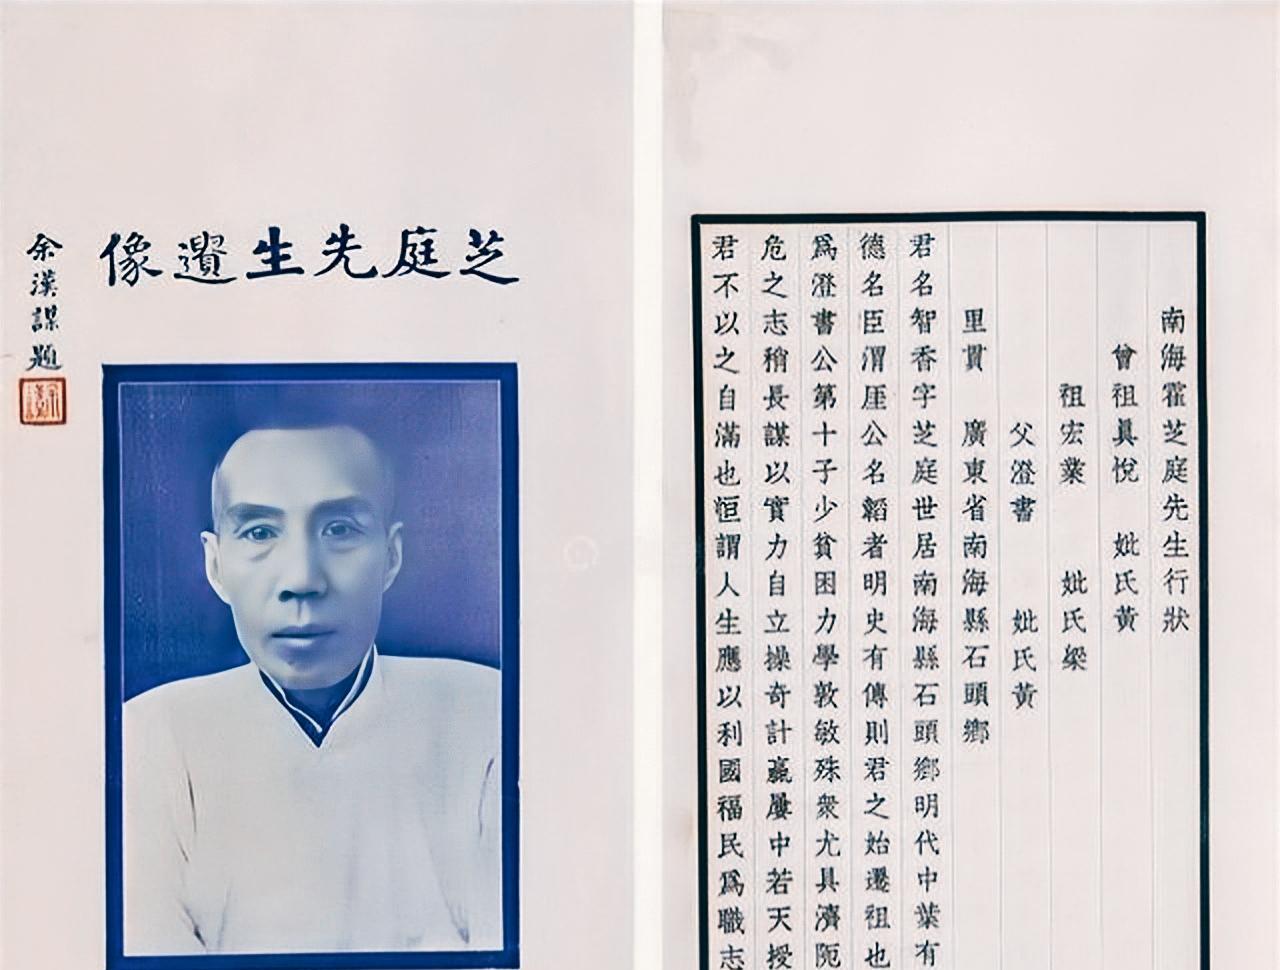 芝庭先生遺像
余漢謀題
南海霍芝庭先生行狀
曾祖眞悅 妣氏黃
祖宏業 妣氏梁
父澄書 妣氏黃
里貫 廣東省南海縣石頭鄉
君名智香字芝庭世居南海縣石頭鄉明代中葉有
德名臣渭厓公名韜者明史有傳則君之始遷祖也
爲澄書公第十子少貧困力學敦敏殊衆尤具濟阨
危之志稍長謀以實力自立操奇計贏屢中若天授
君不以之自滿也恒謂人生應以利國福民爲職志